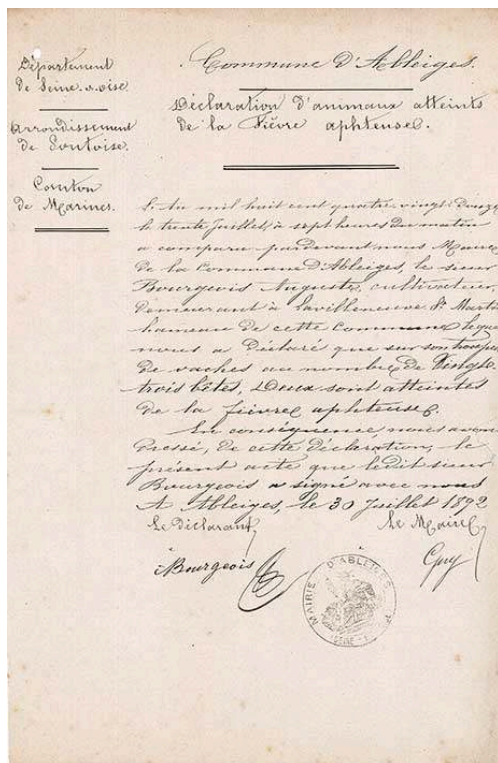 Département
de Seine-&-Oise
Arrondissement
de Pontoise.
Canton
de Marines.
Commune d'Ableiges.
Déclaration d'animaux atteints
de la Fièvre aphteuse.
L'An mil huit cent quatre-vingt-Douze
le trente Juillet, à sept heures du matin
a comparu pardevant nous Maire
de la Commune d'Ableiges, le sieur
Bourgeois Auguste, cultivateur,
demeurant à Lavilleneuve St Martin
hameau de cette Commune lequel
nous a déclaré que sur son troupeau
de vaches au nombre de Vingt-
trois bêtes, Deux sont atteintes
de la fièvre aphteuse.
En conséquence nous avons
dressé, de cette déclaration, le
présent acte que ledit sieur
Bourgeois a signé avec nous
A Ableiges, le 30 Juillet 1892
Le déclarant,
Le Maire,
Bourgeois
Guy
MAIRIE D'ABLEIGES